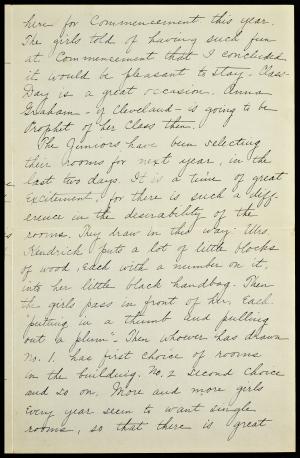 here for Commencement this year.
The girls told of having such fun
at Commencement that I concluded
it would be pleasant to stay - Class-
Day is a great occasion. Anna
Graham - of Cleveland - is going to be
Prophet of her Class then.
The Juniors have been selecting
their rooms for next year, in the
last two days. It is a time of great
excitement, for there is such a diff-
erence in the desirability of the
rooms. They draw in this way: Mrs.
Kendrick puts a lot of little blocks
of wood, each with a number on it,
into her little black handbag. Then
the girls pass in front of her, each
"putting in a thumb and pulling
out a plum" - Then whoever has drawn
No. 1. has first choice of rooms
in the building, No. 2 second choice
and so on. More and more girls
every year seem to want single
rooms, so that there is great